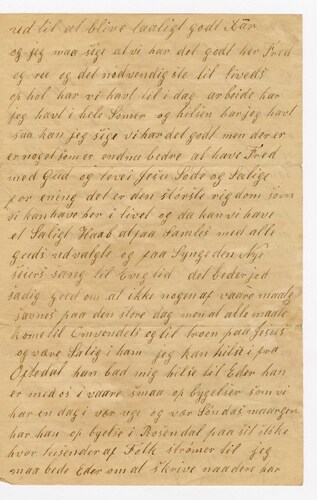 ud til at blive taaligt godt Kår
og jeg maa sige at vi har det godt her Fred
og roe og det nødvendigste til livets
op hol har vi havt til i dag arbeide har
jeg havt i hele Somer og helsen har jeg havt
saa kan jeg sige vi har det godt men der er
er noget som er endnu bedre at have Fred
med Gud og leve i Jesu Søde og Salige
for ening det er den største rigdom som
vi kan have her i livet og da kan vi have
et Saligt Haab at faa Samles med alle
Guds udvalgte og faa Synge den Nye
seiers sang til Evig tid det beder jeg
stadig gud om at ikke nogen af vaare maatte
savnes paa den store dag men at alle maatte
kome til Omvendelse og til troen paa Jesus
og være Salig i ham jeg kan hilse i fra
Oftedal han bad mig hilse til Eder han
er med os i vaare smaa op bygelser som vi
har en dag i vær uge og vær Søndag maargen
har han op bygelse i Rosendal paa sit
hvor tusender af Folk strømer til jeg
maa bede Eder om at skrive naa dere har